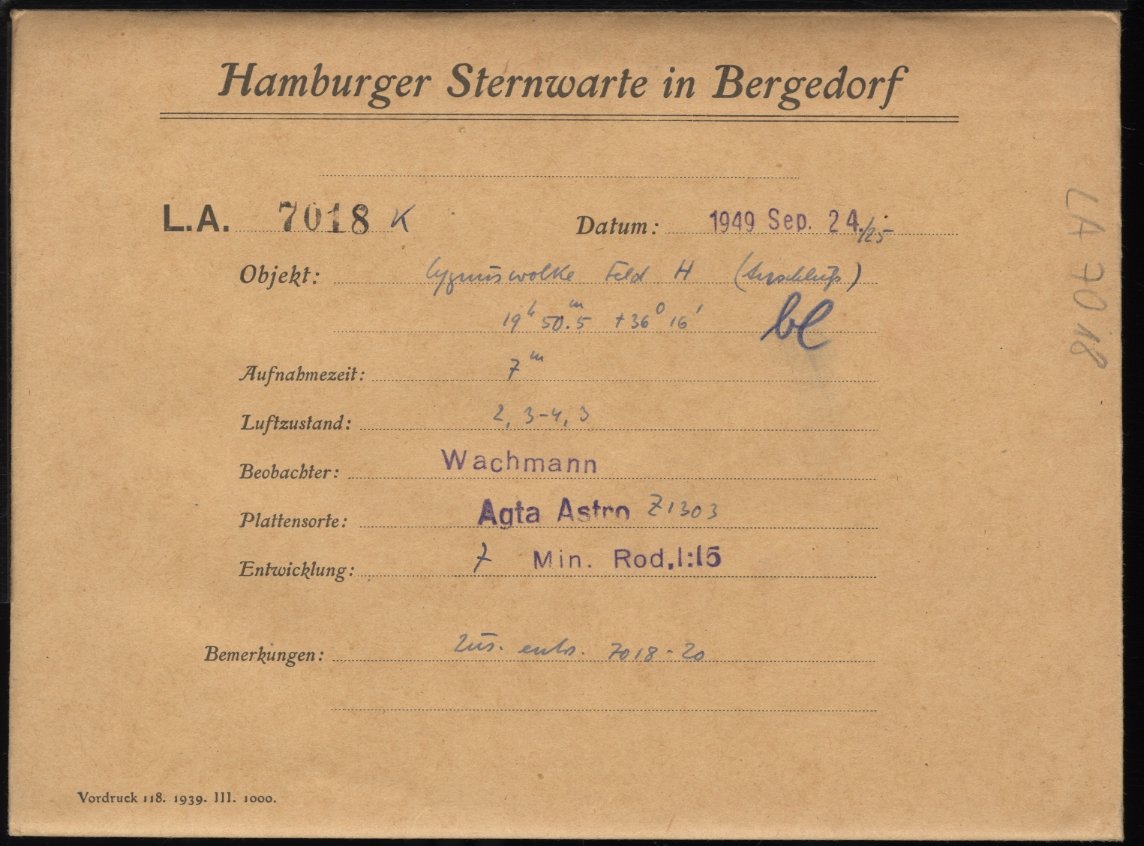 Hamburger Sternwarte in Bergedorf
L.A. 7018 K Datum: 1949 Sep. 24./25
Objekt: Cygnuswolke Feld H (Anschluß)
19ʰ 50.5ᵐ +36⁰ 16'
bl
Aufnahmezeit: 7ᵐ
Luftzustand: 2, 3-4, 3
Beobachter: Wachmann
Plattensorte: Agfa Astro Z1303
Entwicklung: 7 Min. Rod.1:15
Bemerkungen: Zus. entw. 7018-20
Vordruck 118. 1939. III. 1000.
LA 7018